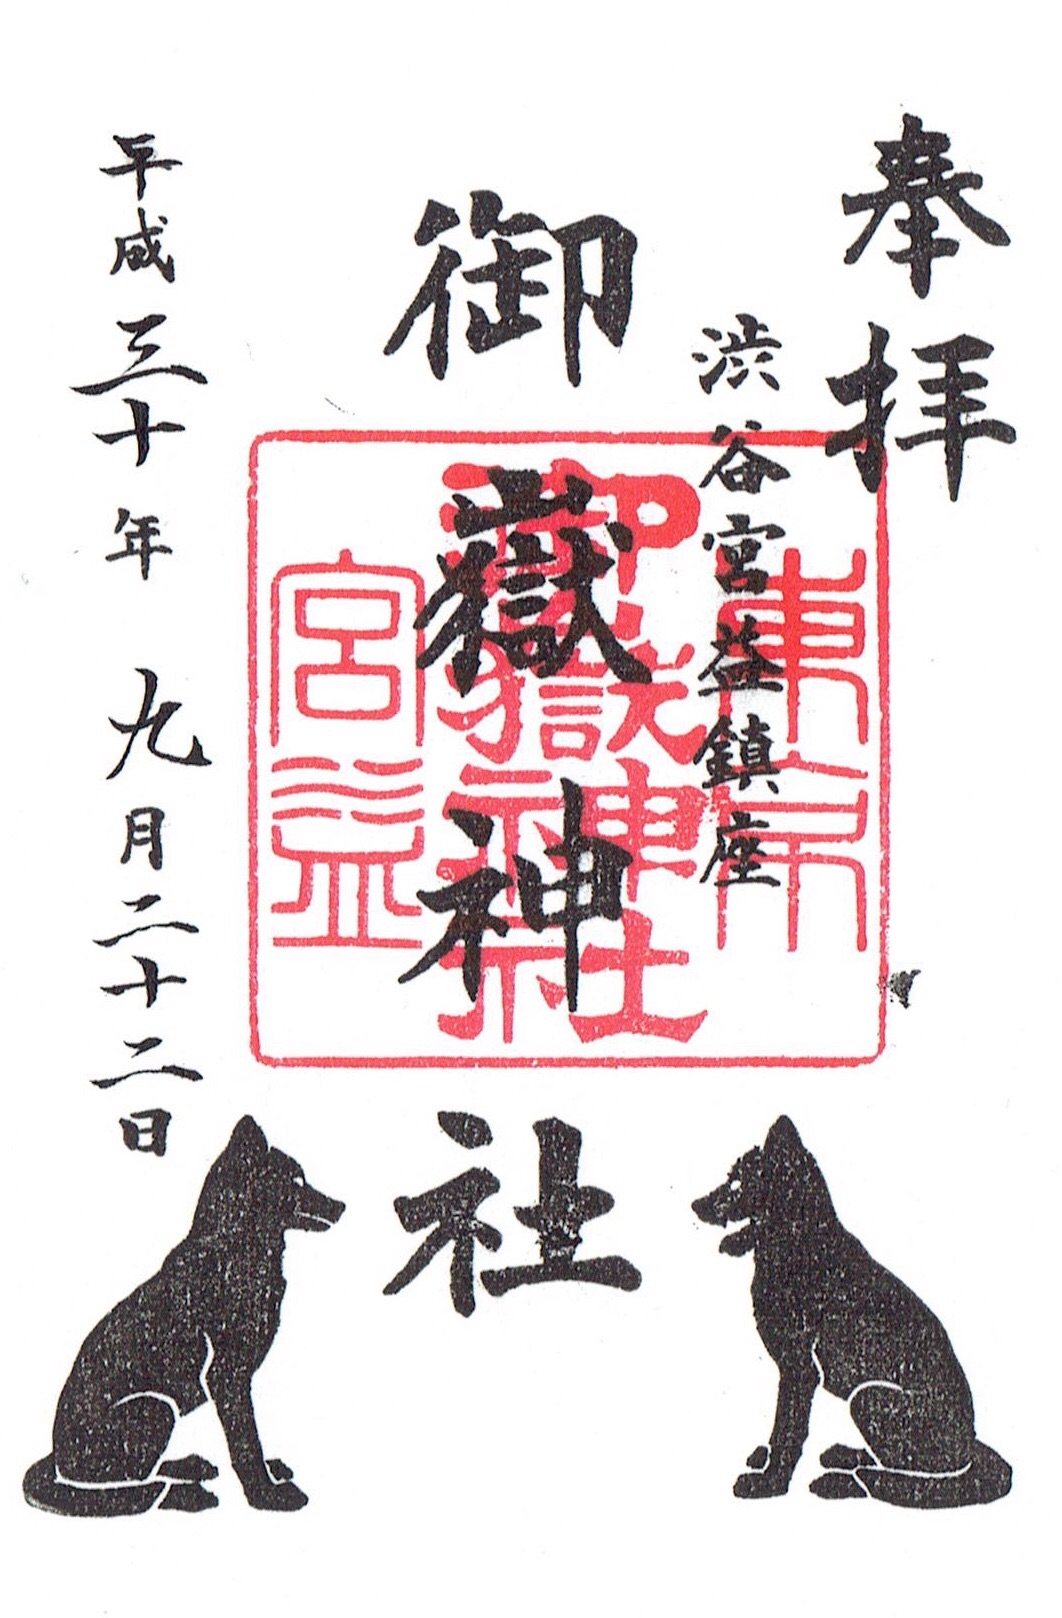 奉拝
渋谷宮益鎮座
御嶽神社
平成三十年 九月二十二日
東京
御嶽神社
宮益